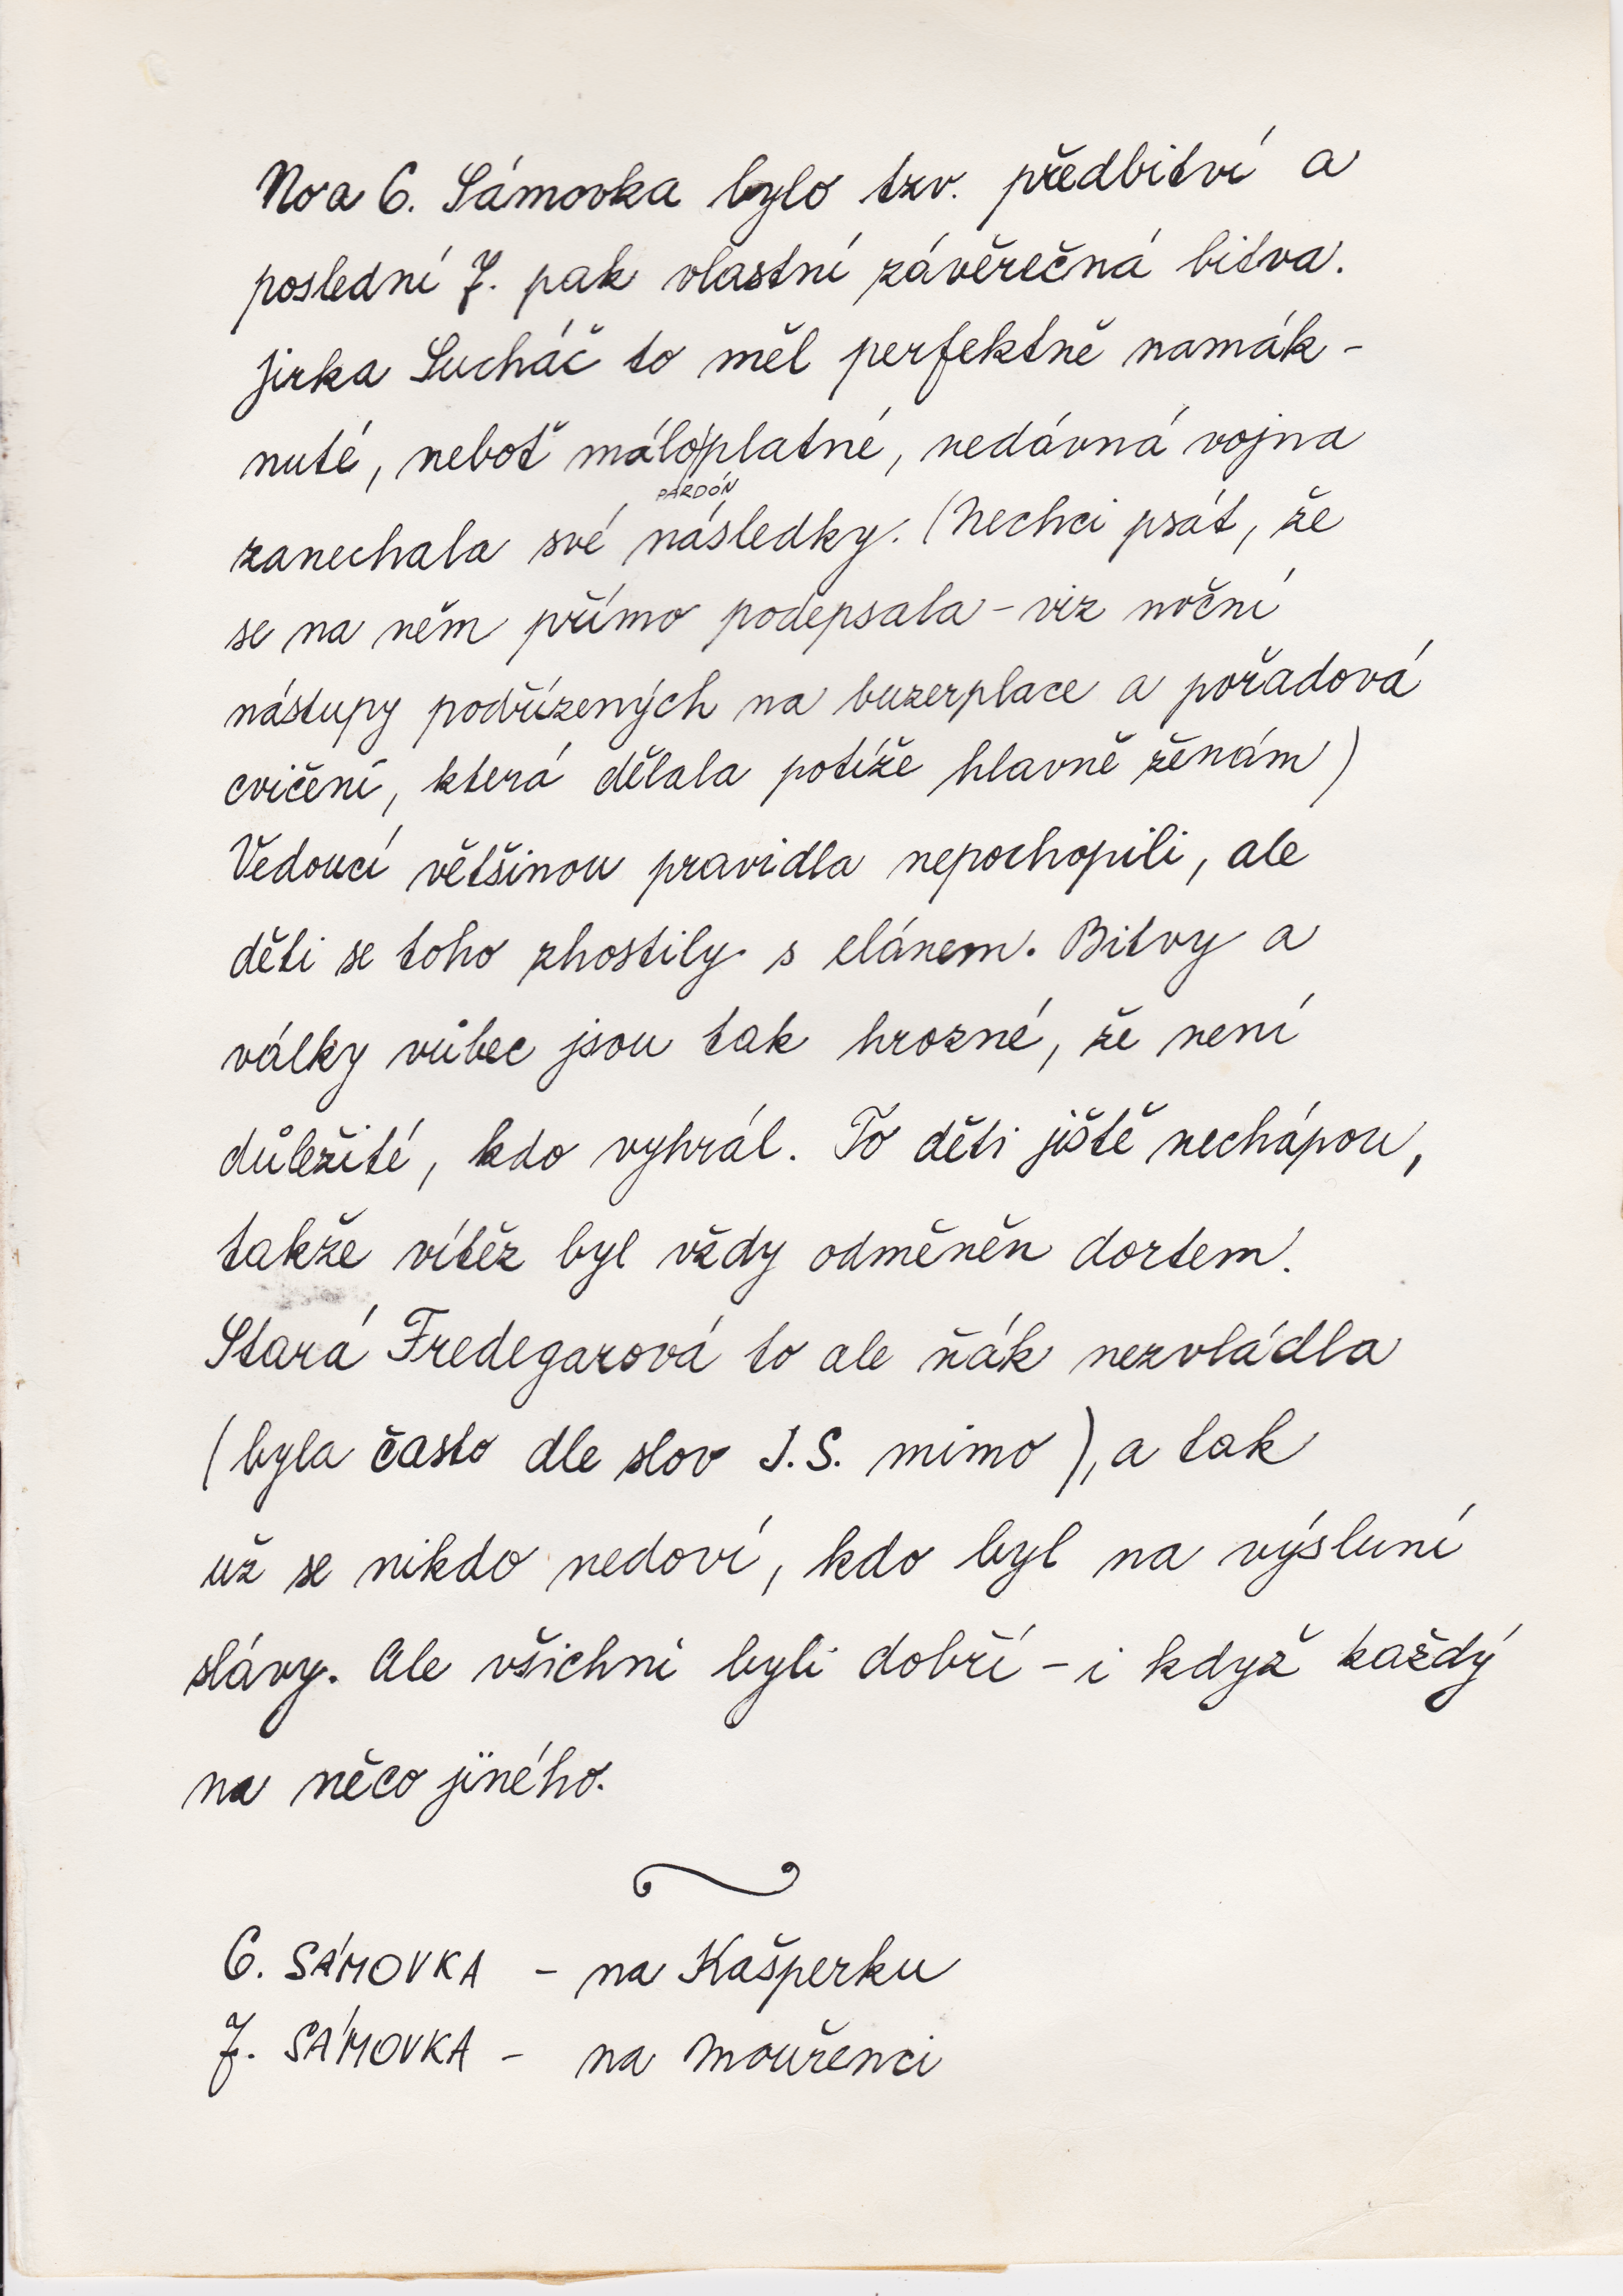 No a 6. Sámovka bylo tzv. předbitví a
poslední 7. pak vlastní závěrečná bitva.
Jirka Sucháč to měl perfektně namák-
nuté, neboť málo/platné, nedávná vojna
PARDÓN
zanechala své následky. (Nechci psát, že
se na něm přímo podepsala – viz noční
nástupy podřízených na buzerplace a pořadová
cvičení, která dělala potíže hlavně ženám)
Vedoucí většinou pravidla nepochopili, ale
děti se toho zhostily s elánem. Bitvy a
války vůbec jsou tak hrozné, že není
důležité, kdo vyhrál. To děti ještě nechápou,
takže vítěz byl vždy odměněn dortem.
Stará Fredegarová to ale ňák nezvládla
(byla často dle slov J.S. mimo), a tak
už se nikdo nedoví, kdo byl na výsluní
slávy. Ale všichni byli dobří – i když každý
na něco jiného.
6. SÁMOVKA – na Kašperku
7. SÁMOVKA – na Mouřenci